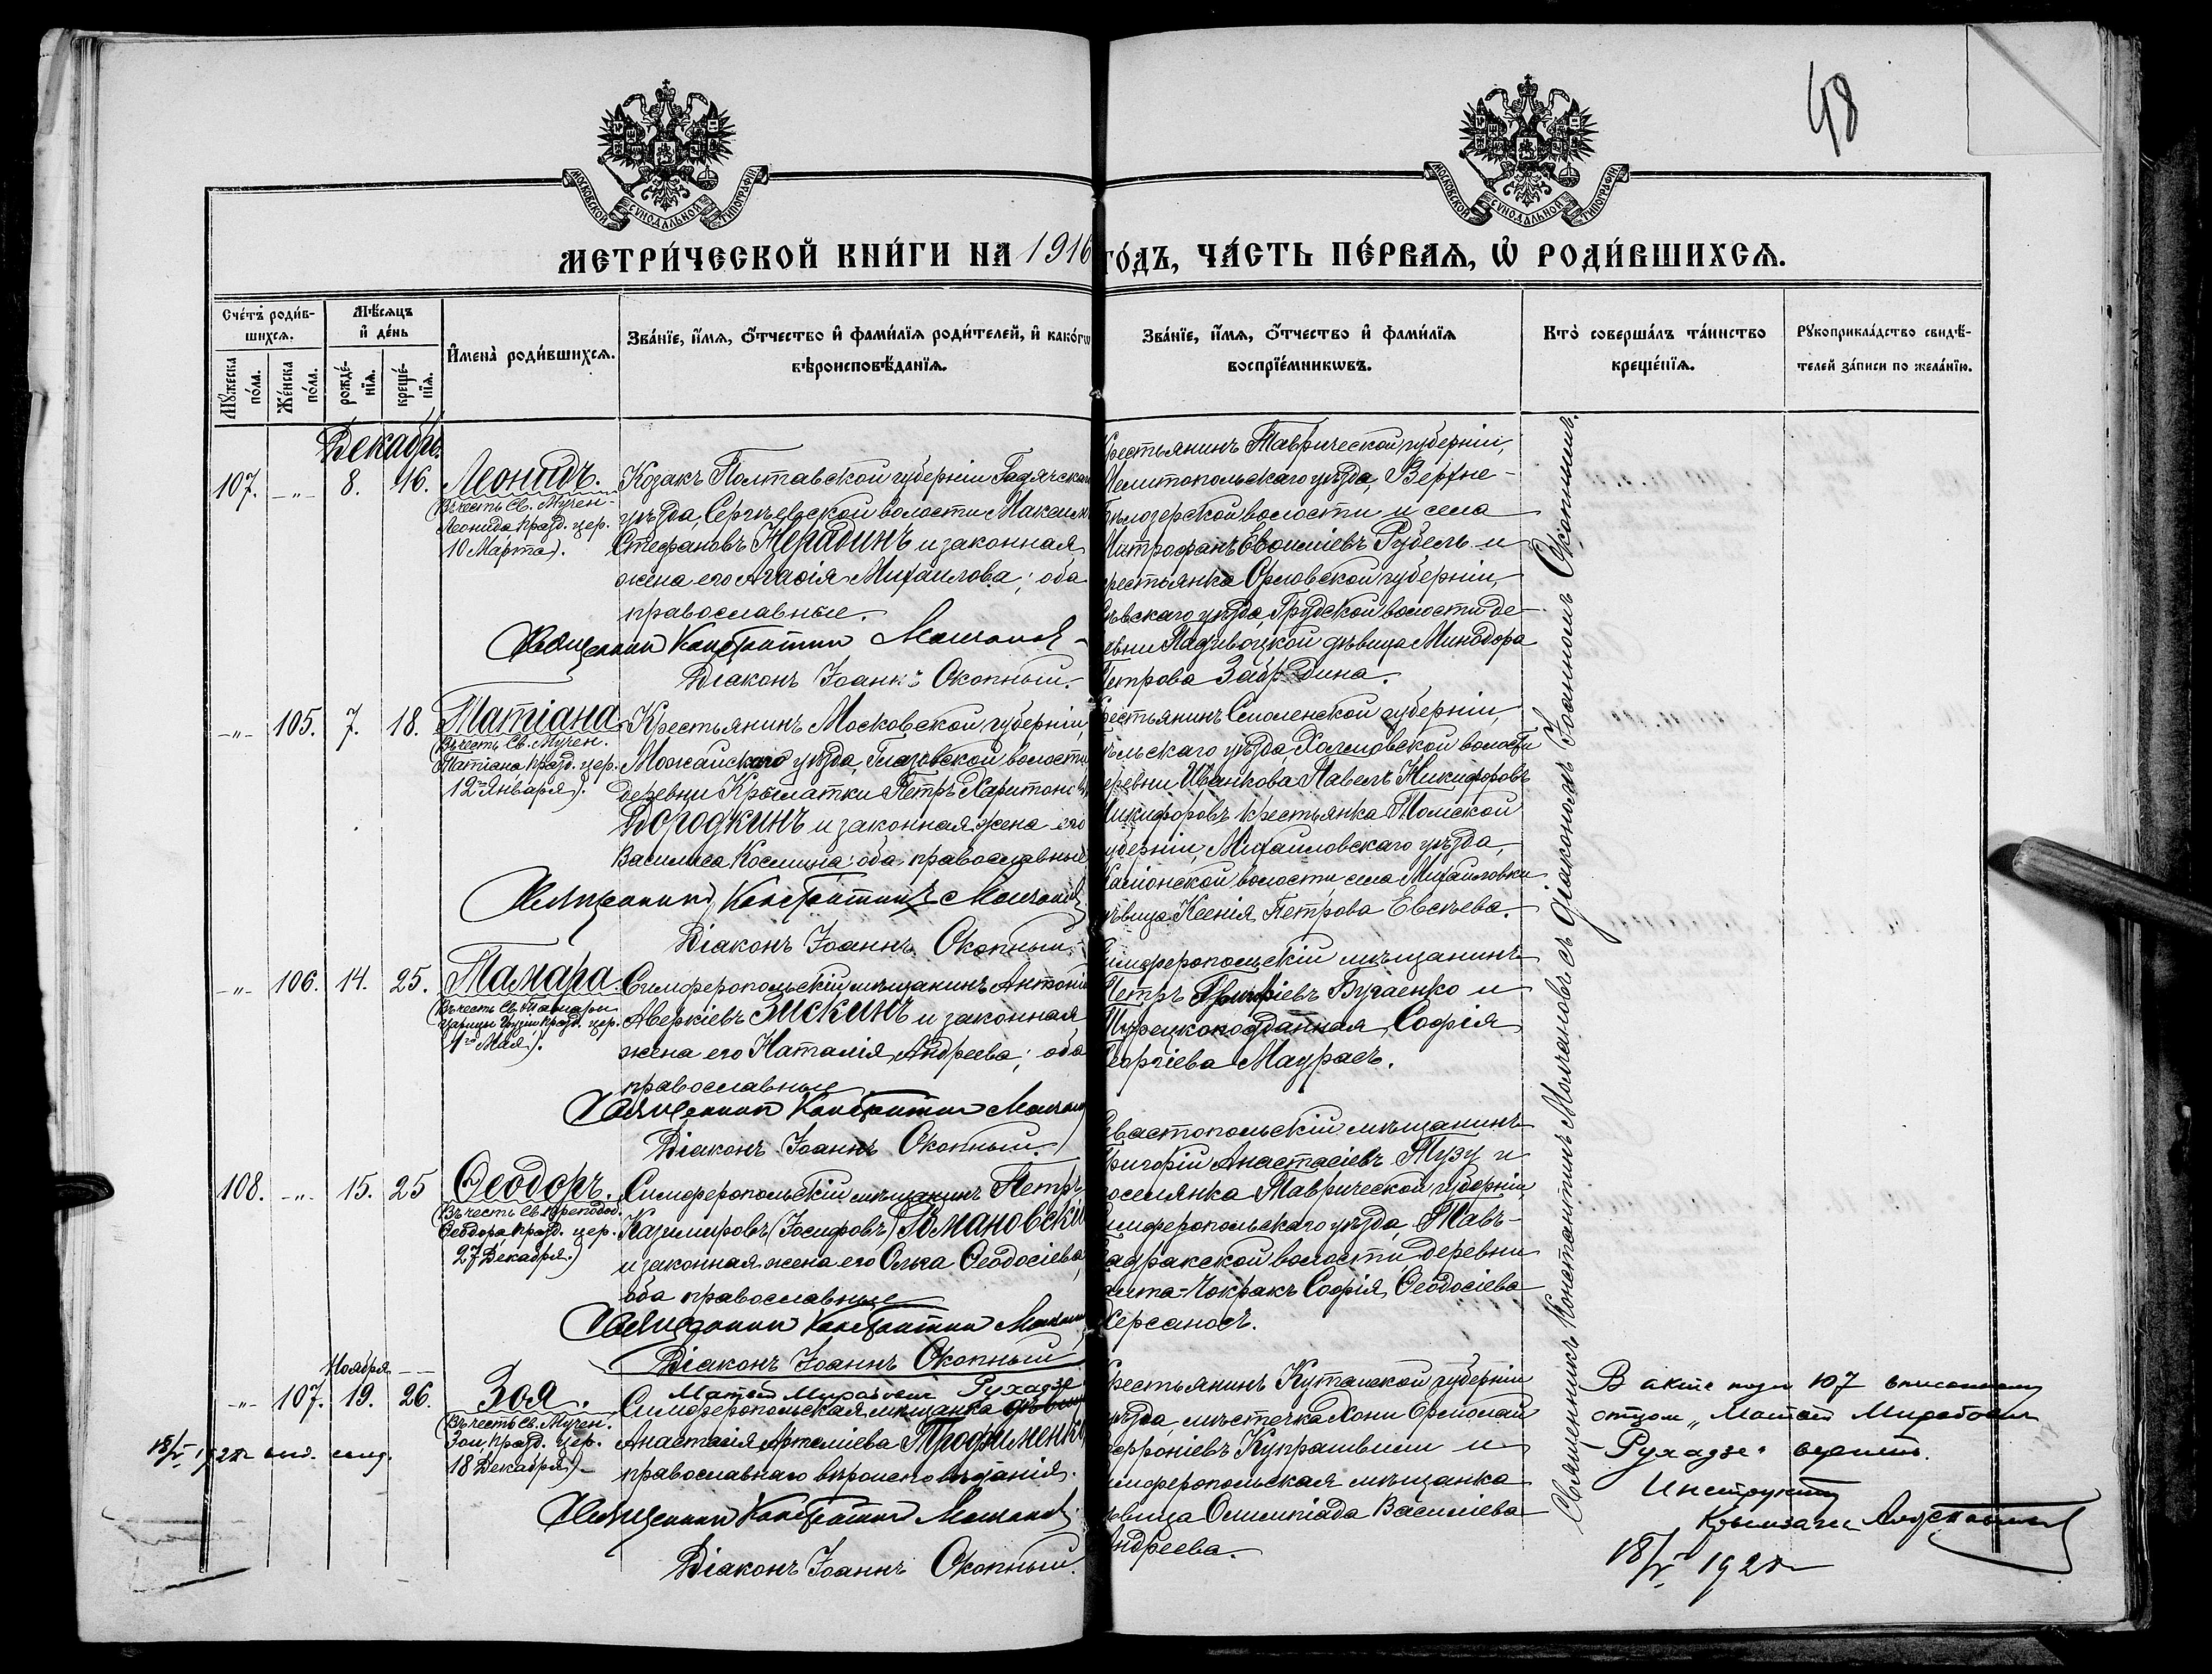 48
МОСКОВСКОЙ СѴНОДАЛЬНОЙ ТИПОГРАФІИ
МОСКОВСКОЙ СѴНОДАЛЬНОЙ ТИПОГРАФІИ
МЕТРИ́ЧЕСКОЙ КНИ́ГИ НА 1916
ГО́ДЪ, ЧА́СТЬ ПЕ́РВАѦ, Ѡ҆ РОДИ́ВШИХСѦ.
Сче́тъ роди́в-
шихсѧ.
Мꙋ́жеска по́ла.
Же́нска по́ла.
Мѣ́сѧцъ
и҆ де́нь
рожде́-
нїѧ.
креще́-
нїѧ.
И҆мена̀ роди́вшихсѧ.
Зва́нїе, и҆́мѧ, ѻ҆́тчество и҆ фами́лїѧ роди́телей, и҆ како́гѡ
вѣроисповѣ́данїѧ.
Зва́нїе, и҆́мѧ, ѻ҆́тчество и҆ фами́лїѧ
воспрїе́мникѡвъ.
Кто̀ соверша́лъ та́инство
креще́нїѧ.
Рꙋкоприкла́дство свидѣ́-
телей за́писи по жела́нїю.
Декабрь.
107. -„- 8. 16. Леонидъ.
(Въ честь Св. Мучен.
Леонида празд. цер.
10 Марта).
Козакъ Полтавской губерніи Гадячскаго
уѣзда, Сергѣевской волости Максим
Стефановъ Нерадинъ и законная
жена его Агафія Михаилова; оба
православные.
Священникъ Константинъ Молчановъ
Діаконъ Іоаннъ Окопный.
Крестьянинъ Таврической губерніи,
Мелитопольскаго уѣзда, Верхне-
Бѣлозерской волости и села
Митрофанъ Евфиміевъ Рубель и
крестьянка Орловской губерніи,
Сѣвскаго уѣзда, Грудской волости де-
ревни Падивоцкой дѣвица Минодора
Петрова Забродина.
-„- 105. 7. 18. Татіана
(Въ честь Св. Мучен.
Татіаны празд. цер.
12го Января).
Крестьянинъ Московской губерніи,
Можайскаго уѣзда, Глазовской волости
деревни Крылатки Петръ Харитоновъ
Бородкинъ и законная жена его
Василиса Космина; оба православные
Священникъ Константинъ Молчановъ
Діаконъ Іоаннъ Окопный.
Крестьянинъ Смоленской губерніи,
Бѣльскаго уѣзда, Холмовской волости
деревни Иванкова Павелъ Никифоровъ
Никифоровъ крестьянка Томской
губерніи, Михайловскаго уѣзда,
волости села Михайловки
дѣвица Ксенія Петрова Евсѣева.
-„- 106. 14. 25. Тамара.
(Въ честь Св. Тамары
Царицы Грузіи празд. цер.
1го Мая).
Симферопольскій мѣщанинъ Антоній
Аверкіевъ Зискинъ и законная
жена его Наталія Андреева; оба
православные
Священникъ Константинъ Молчановъ
Діаконъ Іоаннъ Окопный.
Симферопольскій мѣщанинъ
Петръ Бугаенко и
Турецкоподданная Софія
Георгіева Маурасъ.
108. -„- 15. 25 Ѳеодоръ.
(Въ честь Св. Преподоб.
Ѳеодора, празд. цер.
27 Декабря.)
Симферопольскій мѣщанинъ Петръ
Казимировъ (Іосифовъ) Романовскій
и законная жена его Ольга Ѳеодосіева,
оба православные
Священникъ Константинъ Молчановъ
Діаконъ Іоаннъ Окопный
Севастопольскій мѣщанинъ
Григорій Анастасіевъ Тузу и
поселянка Таврической губерніи
Симферопольскаго уѣзда, Тавъ-
Бадракской волости, деревни
Мамта-Чокракъ Софія Ѳеодосіева
Херсаносъ.
Ноября
-„- 107. 19. 26. Зоя.
(Въ честь Св. Мучен.
Зои, празд. цер.
18 Декабря).
18/V 192
Матвей Мирабович Рухадзе
Симферопольская мѣщанка дѣвица
Анастасія Артеміева Трофименко
православнаго вѣроисповѣданія.
Священникъ Константинъ Молчановъ
Діаконъ Іоаннъ Окопный.
Крестьянинъ Кутаисской губерніи
уѣзда, мѣстечка Хони Ермолай
Софроніевъ Купрашвили и
Симферопольская мѣщанка
дѣвица Олимпіада Васильева
Андреева.
Священникъ Константинъ Молчановъ съ діакономъ Іоанномъ Окопнымъ.
В акте под № 107 вписанному
отцом „Матвей Мирабович
Рухадзе" верить.
Инструктор
18/V 192